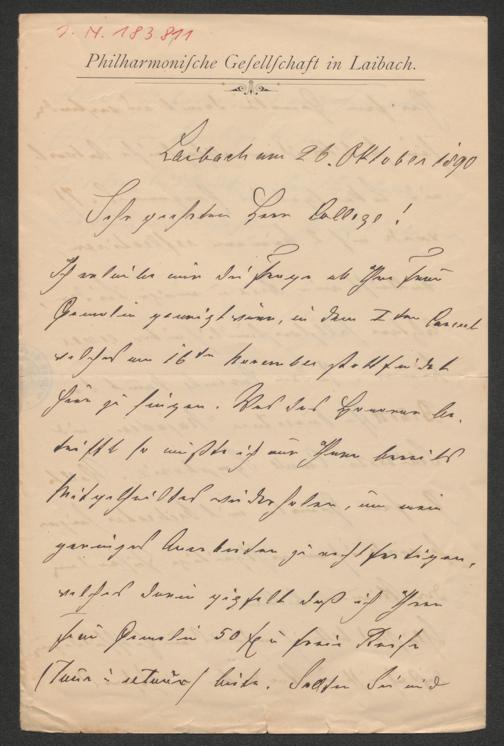 J. N. 183.811
Philharmonische Gesellschaft in Laibach.
Laibach am 26. Oktober 1890
Sehr geehrter Herr College!
Ich erlaube mir die Frage ob Ihre Frau
Gemalin geneigt wäre, in dem I ten Concert
welches am 16ten November stattfindet
hier zu singen. Was das Honorar be-
trifft so müßte ich nur Ihnen bereits
Mitgetheiltes wiederholen, um mein
geringes Anerbieten zu rechtfertigen,
welches darin gipfelt daß ich Ihrer
Frau Gemalin 50 fl u freie Reise
(Tour & retour) biete. Sollten Sie und